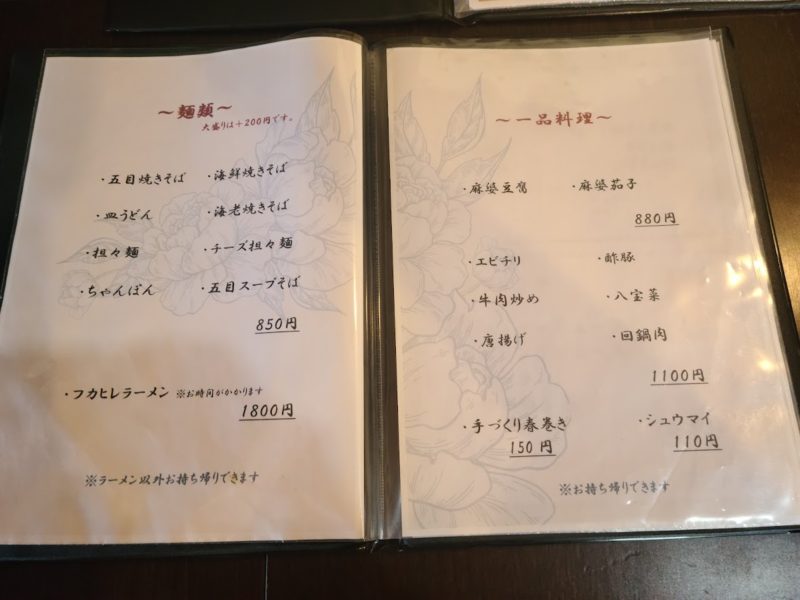 ～麺類～
大盛りは+200円です。
・五目焼きそば ・海鮮焼きそば
・皿うどん ・海老焼きそば
・担々麺 ・チーズ担々麺
・ちゃんぽん ・五目スープそば
850円
・フカヒレラーメン ※お時間がかかります
1800円
※ラーメン以外お持ち帰りできます
～一品料理～
・麻婆豆腐 ・麻婆茄子
880円
・エビチリ ・酢豚
・牛肉炒め ・八宝菜
・唐揚げ ・回鍋肉
1100円
・手づくり春巻き ・シュウマイ
150円 110円
※お持ち帰りできます